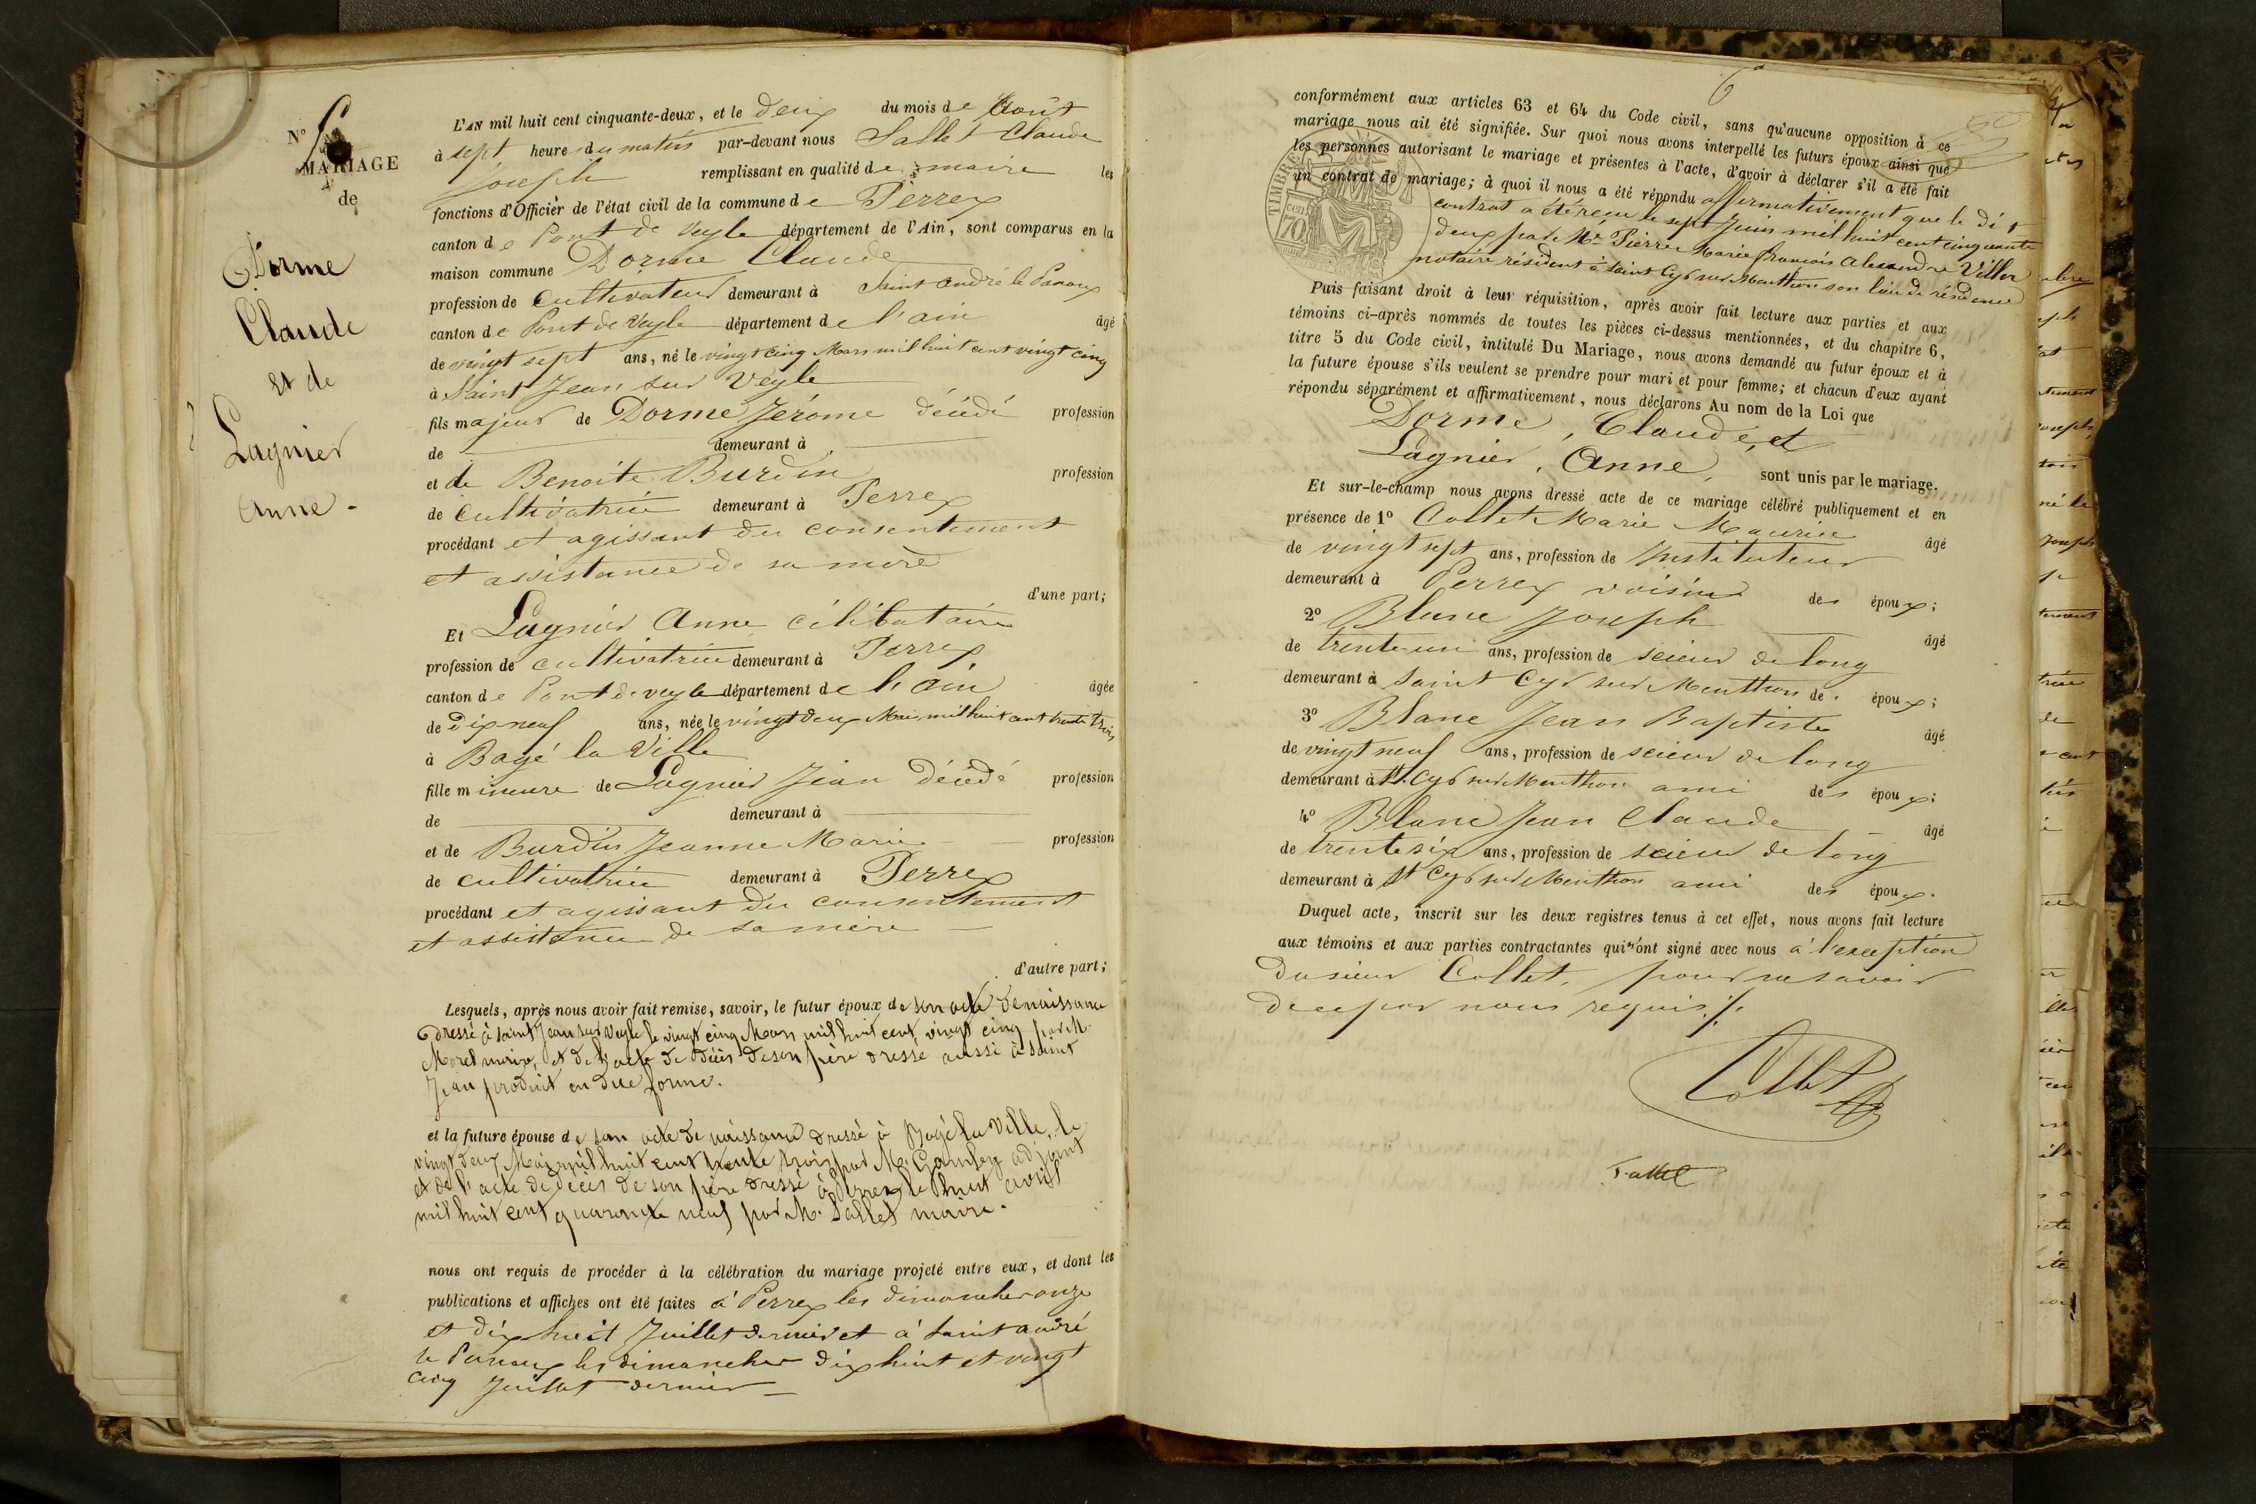 N°
MARIAGE
de
Dorme
Claude
et de
Lagnier
Anne -
L'AN mil huit cent cinquante-deux, et le deux du mois de Août
à sept heure du matin par-devant nous Sallet Claude
Joseph remplissant en qualité de maire les
fonctions d'Officier de l'état civil de la commune de Perrex
canton de Pont de Veyle département de l'Ain, sont comparus en la
maison commune Dorme Claude
profession de cultivateur demeurant à Saint André le Panoux
canton de Pont de Veyle département de l'ain âgé
de vingt sept ans, né le vingt cinq Mars mil huit cent vingt cinq
à Saint Jean sur Veyle
fils majeur de Dorme Jérome décédé profession
de demeurant à
et de Benoite Burdin profession
de cultivatrice demeurant à Perrex
procédant et agissant du consentement
et assistance de sa mère
d'une part;
Et Lagnier Anne célibataire
profession de cultivatrice demeurant à Perrex
canton de Pont de veyle département de l'ain âgée
de Dix neuf ans, née le vingt deux Mai mil huit cent trente trois
à Bagé la Ville
fille mineure de Lagnier Jean Décédé profession
de demeurant à
et de Burdin Jeanne Marie profession
de cultivatrice demeurant à Perrex
procédant et agissant du consentement
et assistance de sa mère
d'autre part;
Lesquels, après nous avoir fait remise, savoir, le futur époux de son acte de naissance
dressé à Saint Jean sur Veyle le vingt cinq Mars mil huit cent vingt cinq par M.
Morel maire, et de l'acte de décès de son père dressé aussi à Saint
Jean produit en due forme.
et la future épouse de son acte de naissance dressé à Bagé la Ville, le
vingt deux Mai mil huit cent trente trois par M. adjoint
et de l'acte de décès de son père dressé à Perrex le huit avril
mil huit cent quarante neuf par M. Sallet maire.
nous ont requis de procéder à la célébration du mariage projeté entre eux, et dont les
publications et affiches ont été faites à Perrex les dimanches onze
et dix huit Juillet dernier et à Saint andré
le Panoux les dimanches dix huit et vingt
cinq Juillet dernier
6
TIMBRE
cen
70
conformément aux articles 63 et 64 du Code civil, sans qu'aucune opposition à ce
mariage nous ait été signifiée. Sur quoi nous avons interpellé les futurs époux ainsi que
les personnes autorisant le mariage et présentes à l'acte, d'avoir à déclarer s'il a été fait
un contrat de mariage; à quoi il nous a été répondu affirmativement que le dit
contrat a été reçu le sept Juin mil huit cent cinquante
deux par Me Pierre Marie françois Alexandre
notaire résident à Saint Cyr sur Menthon son lieu de résidence
Puis faisant droit à leur réquisition, après avoir fait lecture aux parties et aux
témoins ci-après nommés de toutes les pièces ci-dessus mentionnées, et du chapitre 6,
titre 5 du Code civil, intitulé Du Mariage, nous avons demandé au futur époux et à
la future épouse s'ils veulent se prendre pour mari et pour femme; et chacun d'eux ayant
répondu séparément et affirmativement, nous déclarons Au nom de la Loi que
Dorme, Claude, et
Lagnier, Anne, sont unis par le mariage.
Et sur-le-champ nous avons dressé acte de ce mariage célébré publiquement et en
présence de 1° Collet Marie Maurice âgé
de vingt sept ans, profession de Instituteur
demeurant à Perrex voisin des époux;
2° Blanc Joseph âgé
de trente un ans, profession de scieur de long
demeurant à Saint Cyr sur Menthon de. époux;
3° Blanc Jean Baptiste âgé
de vingt neuf ans, profession de scieur de long
demeurant à St. Cyr sur Menthon ami des époux;
4° Blanc Jean Claude âgé
de trente six ans, profession de scieur de long
demeurant à St Cyr sur Menthon ami des époux.
Duquel acte, inscrit sur les deux registres tenus à cet effet, nous avons fait lecture
aux témoins et aux parties contractantes qui n'ont signé avec nous à l'exception
du sieur Collet, pour ne savoir
de ce par nous requis ./.
Collet
Sallet